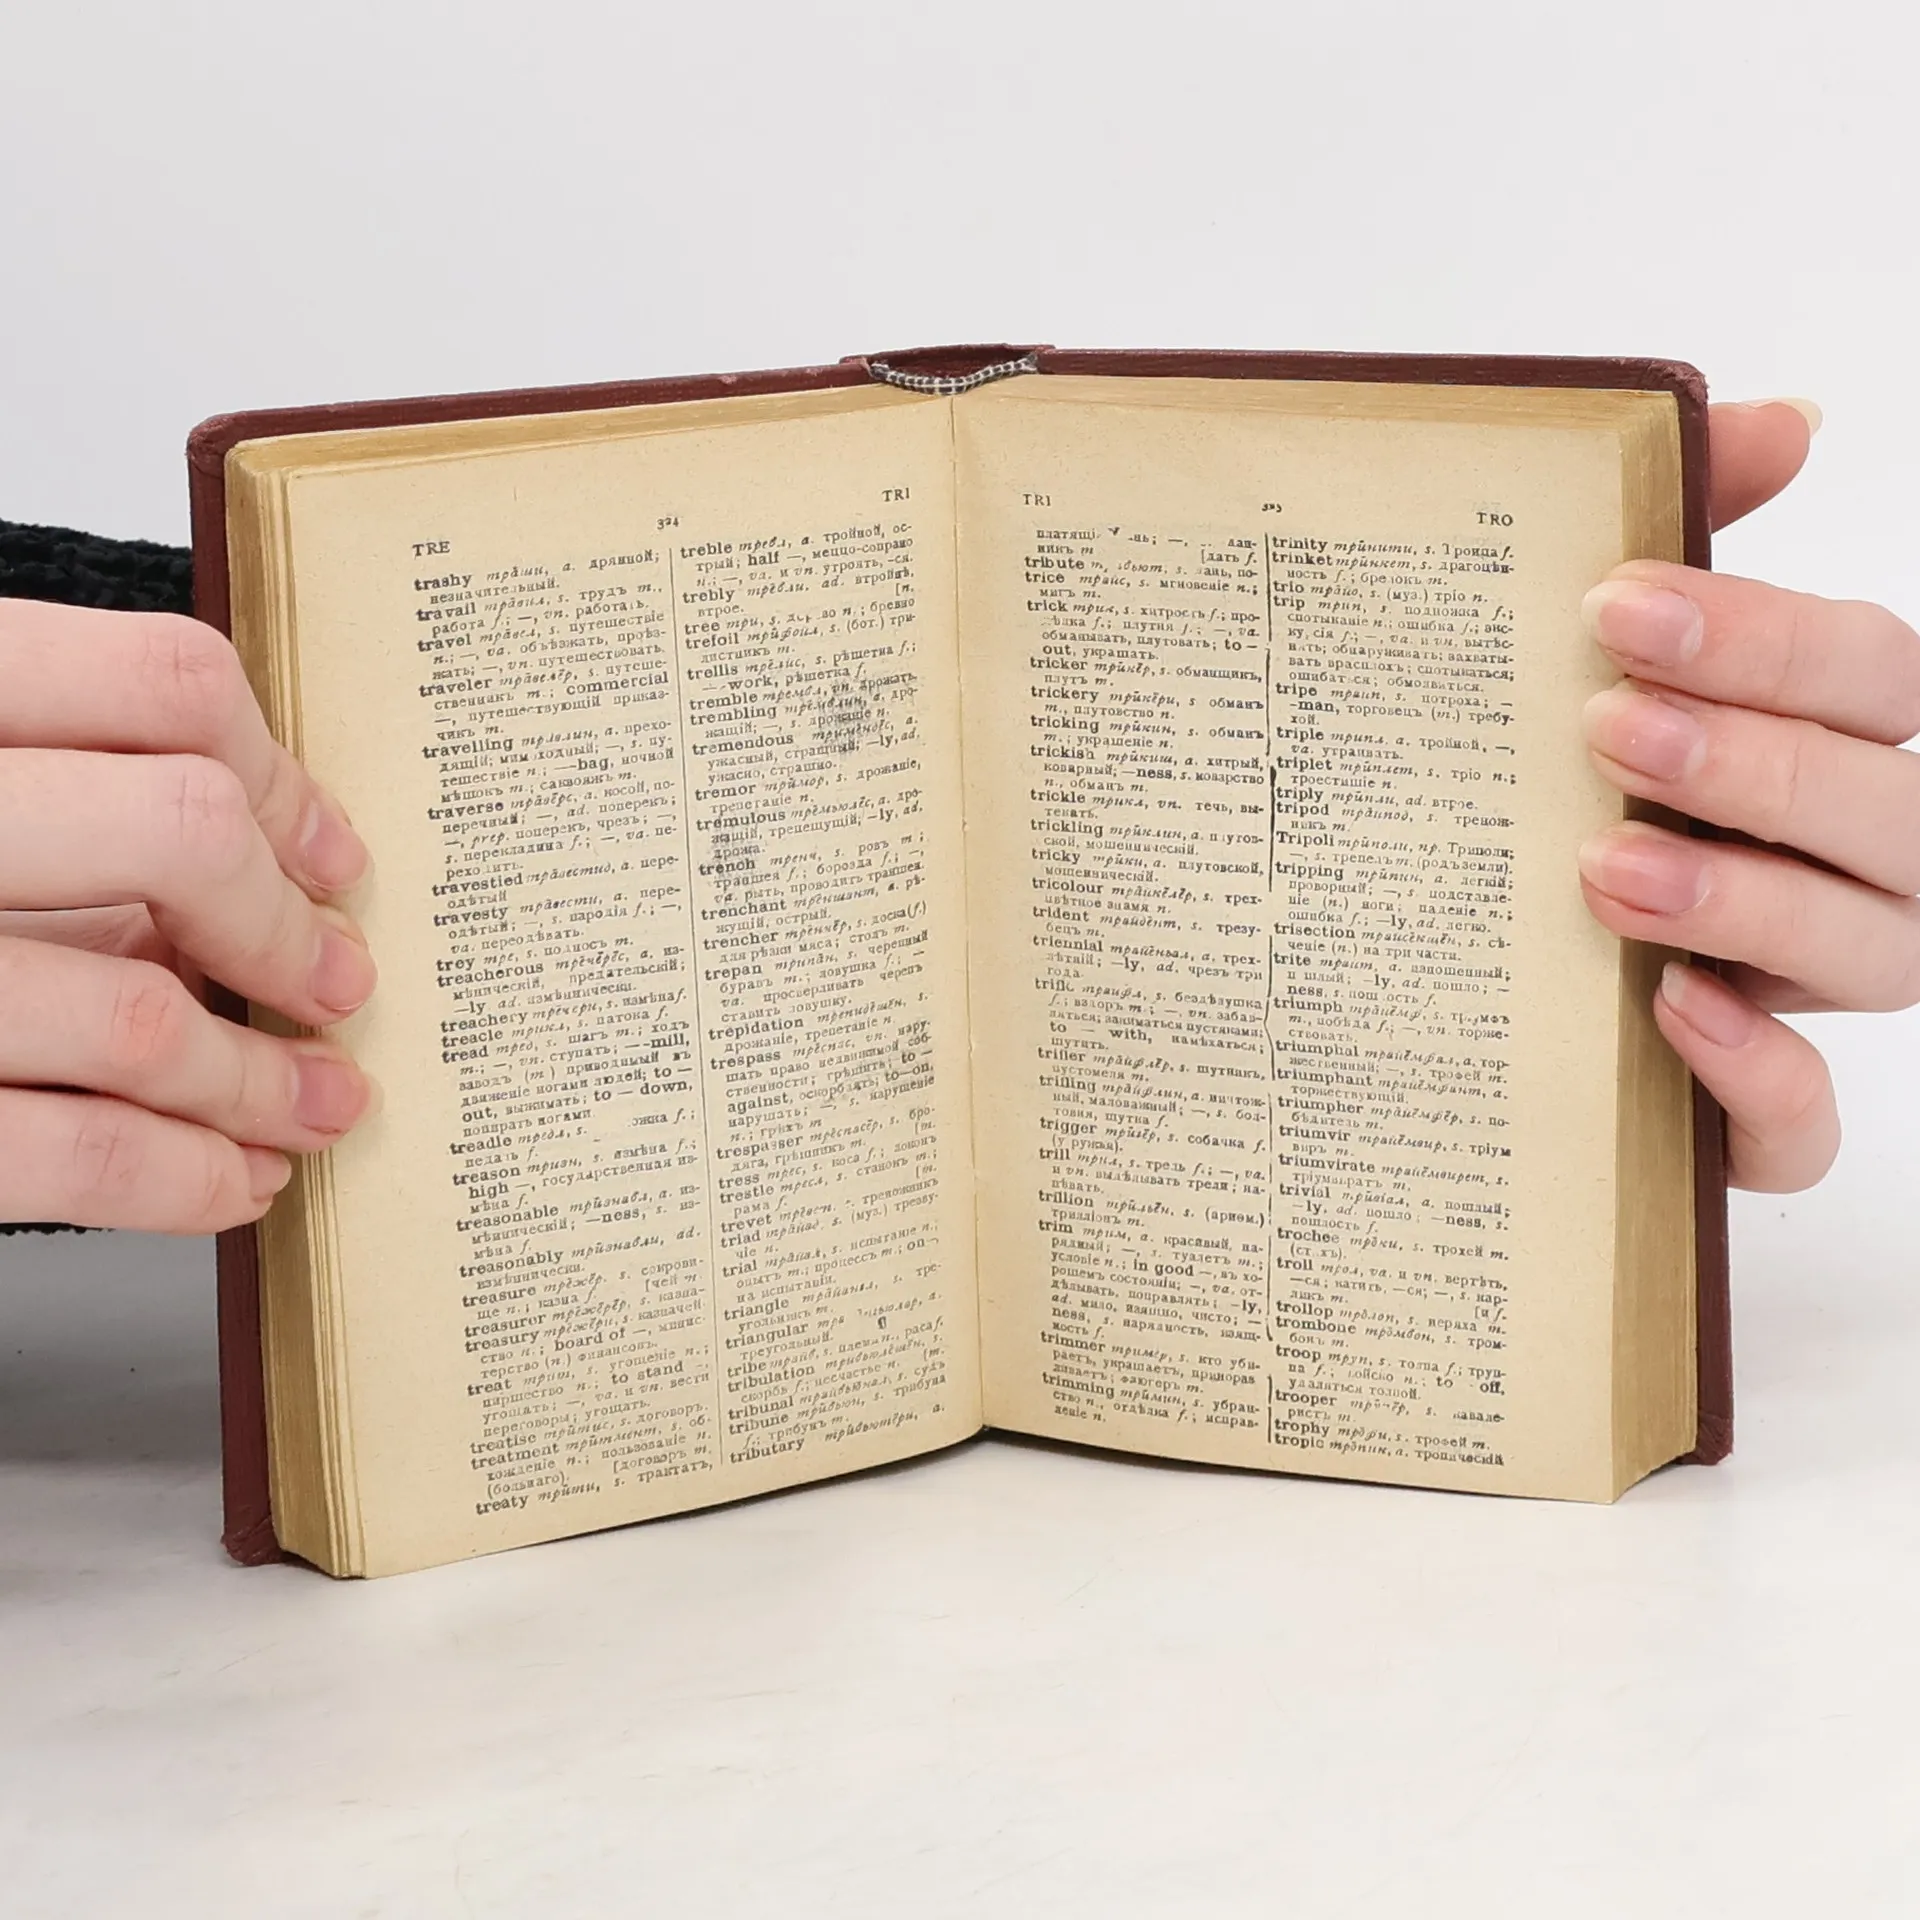 TRE
324
TRI
trashy трăши, a. дрянной;
незначительный.
travail трăвил, s. трудъ m.,
работа f.; —, vn. работать.
travel трăвел, s. путешествіе
n.; —, va. объѣзжать, проѣз-
жать; —, vn. путешествовать.
traveler трăвелĕр, s. путеше-
ственникъ m.; commercial
—, путешествующій приказ-
чикъ m.
travelling a. прехо-
дящій; мимоходный; —, s. пу-
тешествіе n.; —-bag, ночной
мѣшокъ m.; саквояжъ m.
traverse трăвĕрс, a. косой, по-
перечный; —, ad. поперекъ;
—, prep. поперекъ, чрезъ; —,
s. перекладина f.; —, va. пе-
реходить.
travestied трăвестид, a. пере-
одѣтый
travesty трăвести, a. пере-
одѣтый; —, s. пародія f.; —,
va. переодѣвать.
trey тре, s. подносъ m.
treacherous трĕчĕрĕс, a. из-
мѣнническій, предательскій;
—ly ad. измѣннически.
treachery трĕчери, s. измѣна f.
treacle трикл, s. патока f.
tread тред, s. шагъ m.; ходъ
m.; —, vn. ступать; —-mill,
заводъ (m.) приводимый въ
движеніе ногами людей; to —
out, выжимать; to — down,
попирать ногами.
treadle тредл, s. f.;
педаль f.
treason тризн, s. измѣна f.;
high —, государственная из-
мѣна f.
treasonable тризнабл, a. из-
мѣнническій; —ness, s. из-
мѣна f.
treasonably тризнабли, ad.
измѣннически.
treasure трĕжĕр, s. сокрови-
ще n.; казна f. [чей m.
treasurer трĕжĕрĕр, s. казна-
treasury трĕжĕри, s. казначей-
ство n.; board of —, минис-
терство (n.) финансовъ.
treat трит, s. угощеніе n.;
пиршество n.; to stand —,
угощать; —, va. и vn. вести
переговоры; угощать.
treatise тритис, s. договоръ.
treatment тритмент, s. об-
хожденіе n.; пользованіе n.
(больнаго). [договоръ m.
treaty трити, s. трактатъ,
treble требл, a. тройной, ос-
трый; half —, меццо-сопрано
n.; —, va. и vn. утроять, -ся.
trebly требли, ad. втройнѣ,
втрое. [n.
tree три, s. n.; бревно
trefoil трифоил, s. (бот.) три-
листникъ m.
trellis трĕлис, s. рѣшетка f.;
—-work, рѣшетка f.
tremble трембл, vn. дрожать.
trembling тремблин, a. дро-
жащій; —, s. дрожаніе n.
tremendous a.
ужасный, страшный; —ly, ad.
ужасно, страшно.
tremor тримор, s. дрожаніе,
трепетаніе n.
tremulous трĕмьюлĕс, a. дро-
жащій, трепещущій; —ly, ad.
дрожа.
trench тренч, s. ровъ m.;
траншея f.; борозда f.; —,
va. рыть, проводить траншеи.
trenchant треншант, a. рѣ-
жущій, острый.
trencher тренчĕр, s. доска (f.)
для рѣзки мяса; столъ m.
trepan трипăн, s. черепный
буравъ m.; ловушка f.; —
va. просверливать черепъ
ставить ловушку.
trepidation трепидешĕн, s.
дрожаніе, трепетаніе n.
trespass трĕспас, vn. нару-
шать право недвижимой соб-
ственности; грѣшить; to —
against, оскорблять; to—on,
нарушать; —, s. нарушеніе
n.; грѣхъ m
trespasser трĕспасĕр, s. бро-
дяга, грѣшникъ m. [m.
tress трес, s. коса f.; локонъ
trestle тресл, s. станокъ m.;
рама f. [m.
trevet треножникъ
triad трайад, s. (муз.) трезву-
чіе n.
trial трайал, s. испытаніе n.;
опытъ m.; процессъ m.; on—,
на испытаніи.
triangle трайангл, s. тре-
угольникъ m.
triangular a.
треугольный.
tribe трайб, s. племя n., раса f.
tribulation трибьюлешĕн, s.
скорбь f.; несчастье n. [m.
tribunal трайбьюнал, s. судъ
tribune трибьюн, s. трибуна
f.; трибунъ m.
tributary трибьютĕри, a.
TRI
325
TRO
платящій —, дан-
никъ m [дать f.
tribute дань, по-
trice трайс, s. мгновеніе n.;
мигъ m.
trick трик, s. хитрость f.; про-
дѣлка f.; плутня f.; —, va.
обманывать, плутовать; to —
out, украшать.
tricker трикĕр, s. обманщикъ,
плутъ m.
trickery трикĕри, s обманъ
m., плутовство n.
tricking трикин, s. обманъ
m.; украшеніе n.
trickish трикиш, a. хитрый,
коварный; —ness, s. коварство
n., обманъ m.
trickle трикл, vn. течь, вы-
текать.
trickling триклин, a. плутов-
ской, мошенническій.
tricky трики, a. плутовской,
мошенническій.
tricolour трайкĕлĕр, s. трех-
цвѣтное знамя n.
trident трайдент, s. трезу-
бецъ m.
triennial трайеньал, a. трех-
лѣтній; —ly, ad. чрезъ три
года.
trifle трайфл, s. бездѣлушка
f.; вздоръ m.; —, vn. забав-
ляться; заниматься пустяками;
to — with, намѣхаться;
шутить.
trifler трайфлĕр, s. шутникъ,
пустомеля m.
trifling трайфлин, a. ничтож-
ный, маловажный; —, s. бол-
товня, шутка f.
trigger тригĕр, s. собачка f.
(у ружья).
trill трил, s. трель f.; —, va.
и vn. выдѣлывать трели; на-
пѣвать.
trillion трильĕн, s. (арием.)
трилліонъ m.
trim трим, a. красивый, на-
рядный; —, s. туалетъ m.;
условіе n.; in good —, въ хо-
рошемъ состояніи; —, va. от-
дѣлывать, поправлять; —ly,
ad. мило, изящно, чисто; —
ness, s. нарядность, изящ-
ность f.
trimmer тримĕр, s. кто уби-
раетъ, украшаетъ, принорав-
ливаетъ; флюгеръ m.
trimming тримин, s. убран-
ство n., отдѣлка f.; исправ-
леніе n.
trinity тринити, s. Троица f.
trinket тринкет, s. драгоцѣн-
ность f.; брелокъ m.
trio трайо, s. (муз.) тріо n.
trip трип, s. подножка f.;
спотыканіе n.; ошибка f.; экс-
курсія f.; —, va. и vn. вытѣс-
нять; обнаруживать; захваты-
вать врасплохъ; спотыкаться;
ошибаться; обмолвиться.
tripe трайп, s. потроха; —
-man, торговецъ (m.) требу-
хой.
triple трипл. a. тройной, —,
va. утраивать.
triplet триплет, s. тріо n.;
троестишіе n.
triply трипли, ad. втрое.
tripod трайпод, s. тренож-
никъ m.
Tripoli триполи, np. Триполи;
—, s. трепелъ m. (родъ земли).
tripping трипин, a. легкій;
проворный; —, s. подставле-
ніе (n.) ноги; паденіе n.;
ошибка f.; —ly, ad. легко.
trisection трайсекшĕн, s. сѣ-
ченіе (n.) на три части.
trite трайт, a. изношенный;
пошлый; —ly, ad. пошло; —
ness, s. пошлость f.
triumph трайĕмф, s. тріумфъ
m., побѣда f.; —, vn. торже-
ствовать.
triumphal трайĕмфал, a. тор-
жественный; —, s. трофей m.
triumphant трайĕмфант, a.
торжествующій.
triumpher трайĕмфĕр, s. по-
бѣдитель m.
triumvir трайĕмвир, s. тріум
виръ m.
triumvirate трайĕмвирет, s.
тріумвиратъ m.
trivial тривіал, a. пошлый;
—ly, ad. пошло; —ness, s.
пошлость f.
trochee троки, s. трохей m.
(стихъ).
troll трол, va. и vn. вертѣть,
—ся; катить, —ся; —, s. кар-
ликъ m. [и f.
trollop тролоп, s. неряха m.
trombone тромбон, s. тром-
бонъ m.
troop труп, s. толпа f.; труп-
па f.; войско n.; to — off,
удаляться толпой.
trooper s. кавале-
ристъ m.
trophy трофи, s. трофей m.
tropic тропик, a. тропическій